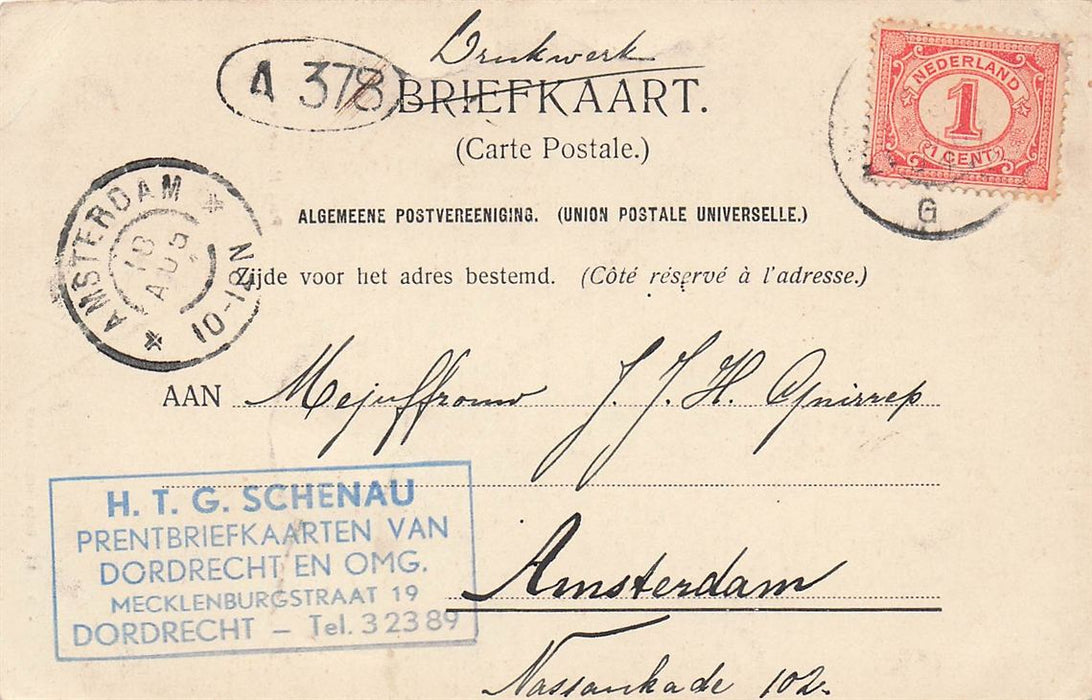 Drukwerk
A 378
BRIEFKAART.
(Carte Postale.)
NEDERLAND
1
1 CENT
G
ALGEMEENE POSTVEREENIGING. (UNION POSTALE UNIVERSELLE.)
AMSTERDAM
18 AUG
10-12N
Zijde voor het adres bestemd. (Côté réservé à l'adresse.)
AAN Mejuffrouw J. J. H. Gnirrep
Amsterdam
Nassaukade 102.
H. T. G. SCHENAU
PRENTBRIEFKAARTEN VAN
DORDRECHT EN OMG.
MECKLENBURGSTRAAT 19
DORDRECHT — Tel. 32389